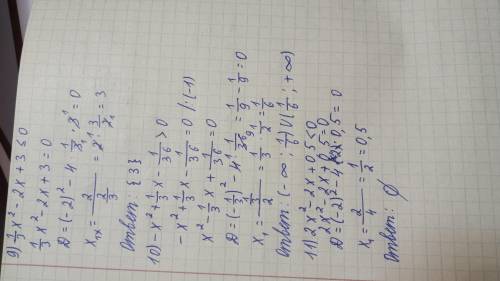 9) 1/3 x² - 2x + 3 ≤ 0
1/3 x² - 2x + 3 = 0
D = (-2)² - 4 · 1/3 · 3 = 0
x₁ = 2 / (2/3) = 2 · 3/2 = 3
Ответ: {3}
10) -x² + 1/3 x - 1/36 > 0
-x² + 1/3 x - 1/36 = 0 | : (-1)
x² - 1/3 x + 1/36 = 0
D = (-1/3)² - 4 · 1/36 = 1/9 - 1/9 = 0
x₁ = (1/3) / 2 = 1/3 · 1/2 = 1/6
Ответ: (-∞; 1/6) ∪ (1/6; +∞)
11) 2x² - 2x + 0,5 < 0
2x² - 2x + 0,5 = 0
D = (-2)² - 4 · 2 · 0,5 = 0
x₁ = 2/4 = 1/2 = 0,5
Ответ: ∅